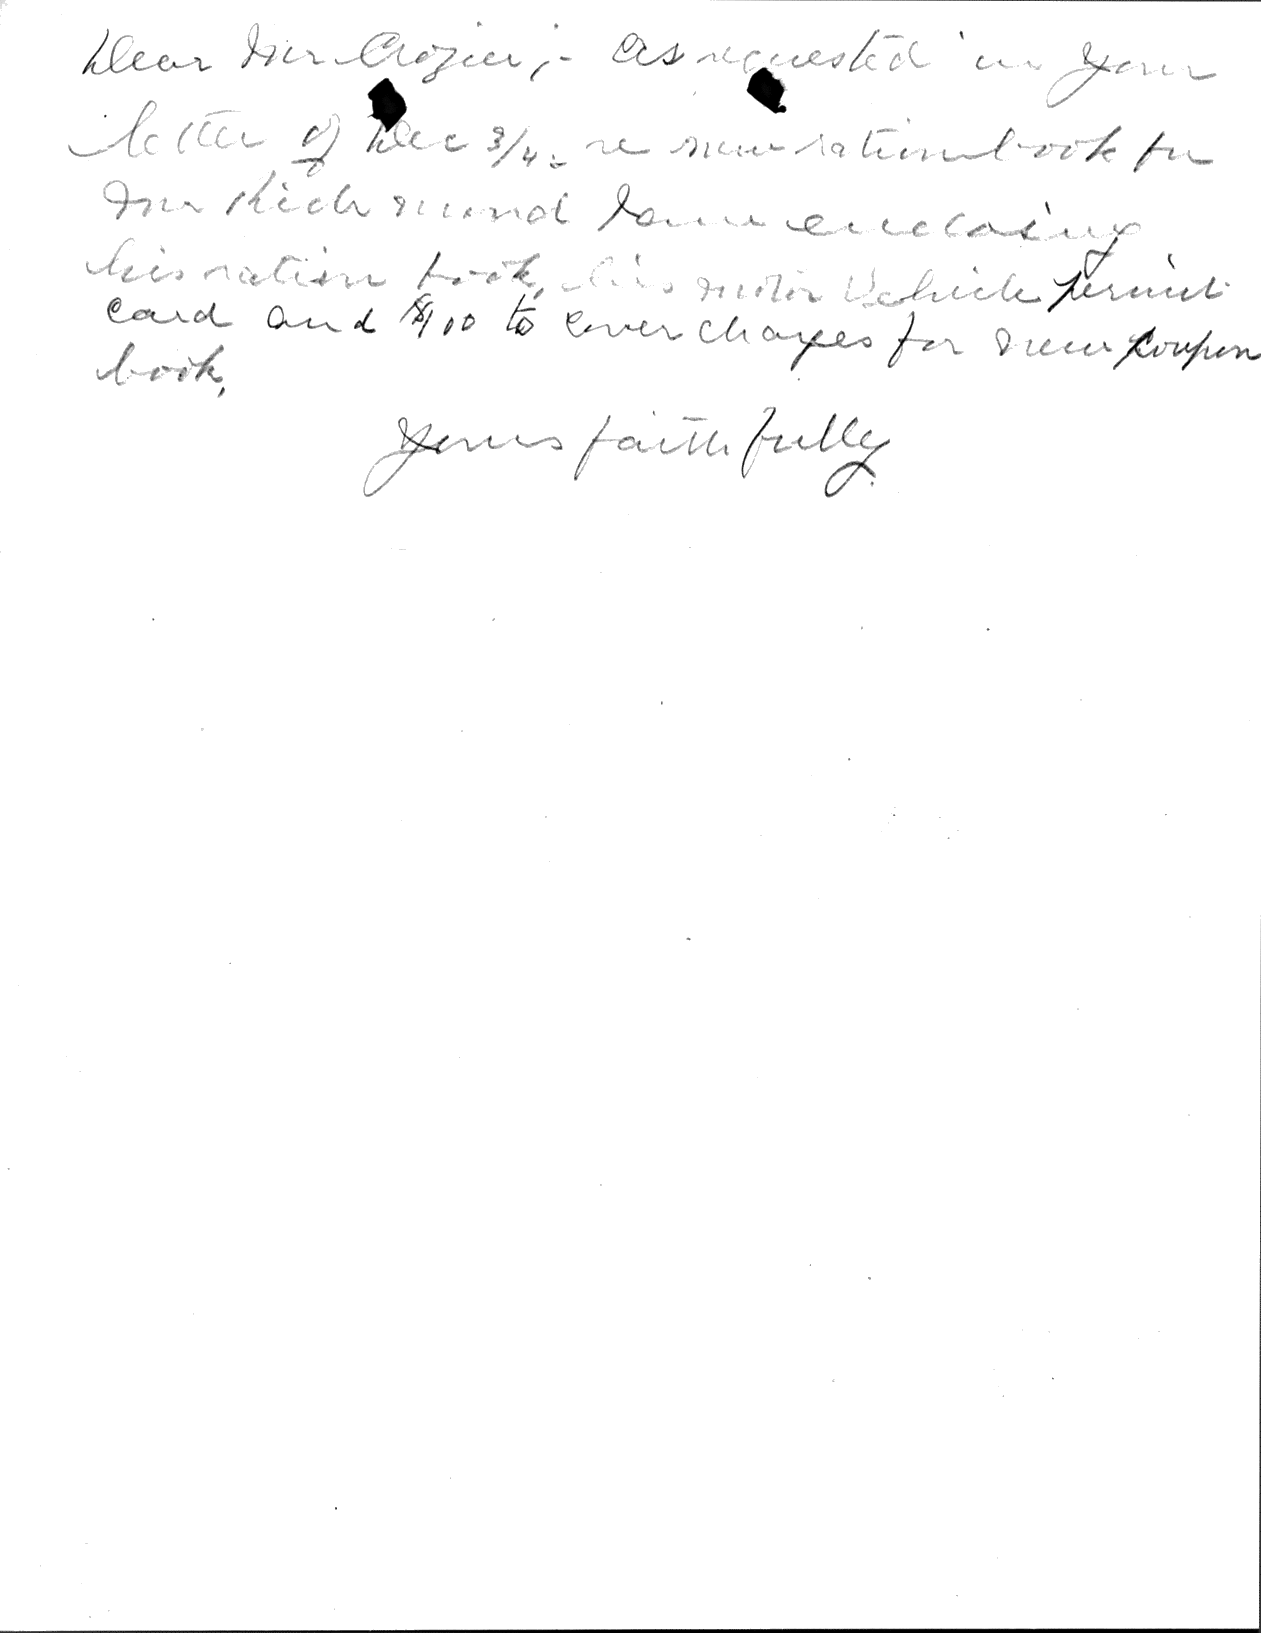 Dear Mr Crozier;- As requested in your
letter of Dec 3/42 re new ration book for
Mr Richmond I am enclosing
his ration book, his motor vehicle permit
card and $1.00 to cover charges for new coupon
book,
Yours faithfully.